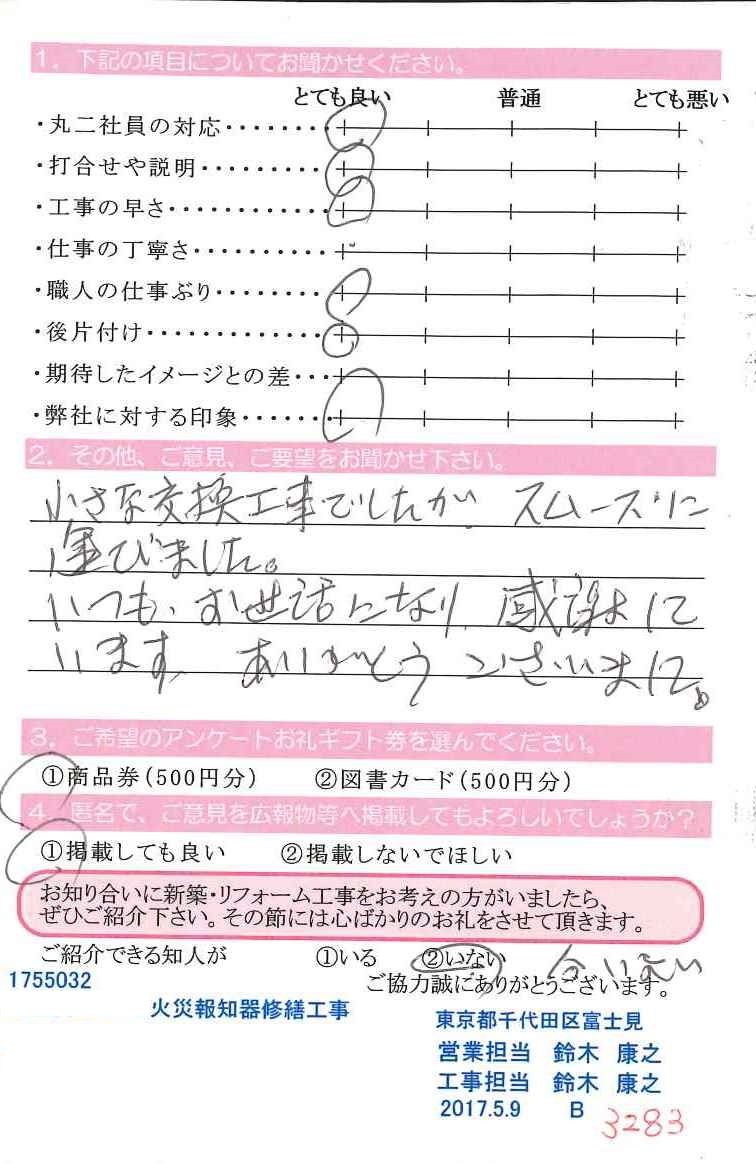 1. 下記の項目についてお聞かせください。
とても良い 普通 とても悪い
・丸二社員の対応・・・・・・・・
・打合せや説明・・・・・・・・・
・工事の早さ・・・・・・・・・・・
・仕事の丁寧さ・・・・・・・・・・
・職人の仕事ぶり・・・・・・・・
・後片付け・・・・・・・・・・・・・
・期待したイメージとの差・・・
・弊社に対する印象・・・・・・・
2. その他、ご意見、ご要望をお聞かせ下さい。
小さな交換工事でしたが、スムーズに
運びました。
いつも、お世話になり、感謝して
います。ありがとうございました。
3. ご希望のアンケートお礼ギフト券を選んでください。
①商品券(500円分) ②図書カード(500円分)
4. 匿名で、ご意見を広報物等へ掲載してもよろしいでしょうか?
①掲載しても良い ②掲載しないでほしい
お知り合いに新築・リフォーム工事をお考えの方がいましたら、
ぜひご紹介下さい。その節には心ばかりのお礼をさせて頂きます。
ご紹介できる知人が ①いる ②いない
ご協力誠にありがとうございます。
1755032
火災報知器修繕工事
東京都千代田区富士見
営業担当 鈴木 康之
工事担当 鈴木 康之
2017.5.9 B 3283